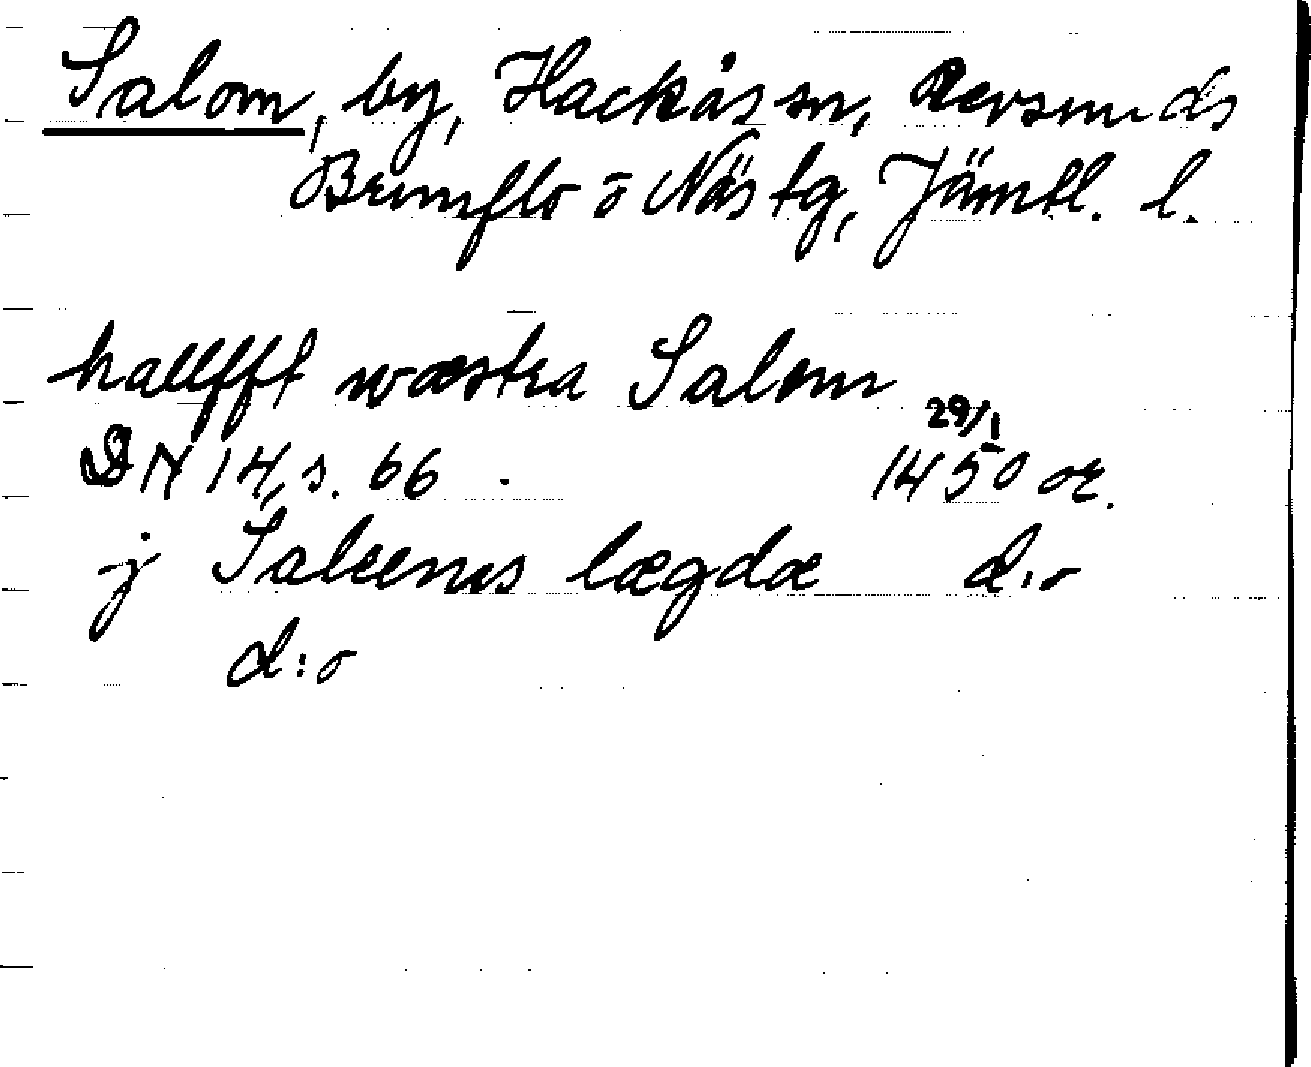 Salom, by, Hackås sn, Revsunds
Brunflo o Näs tg, Jämtl. l.
hallfft wæstra Salom
29/1
DN 14, s. 66 . 1450 or.
j Saleems lægdæ d:o
d:o